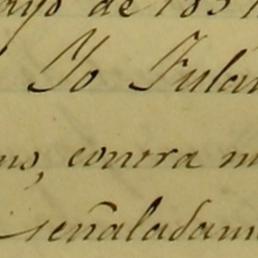 ayo de 185
Yo Fulan
no, contra m
señaladam